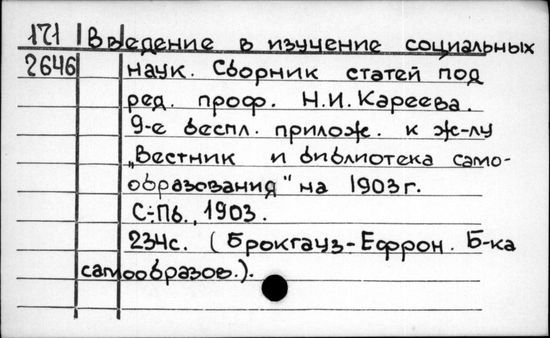 171 Введение в изучение социальных
2646 наук. Сборник статей под
ред. проф. Н.И. Кареева.
9-е беспл. прилож. к ж-лу
„Вестник и библиотека само-
образования" на 1903 г.
С-Пб., 1903.
234с. (Брокгауз-Ефрон. Б-ка
самообразов.).